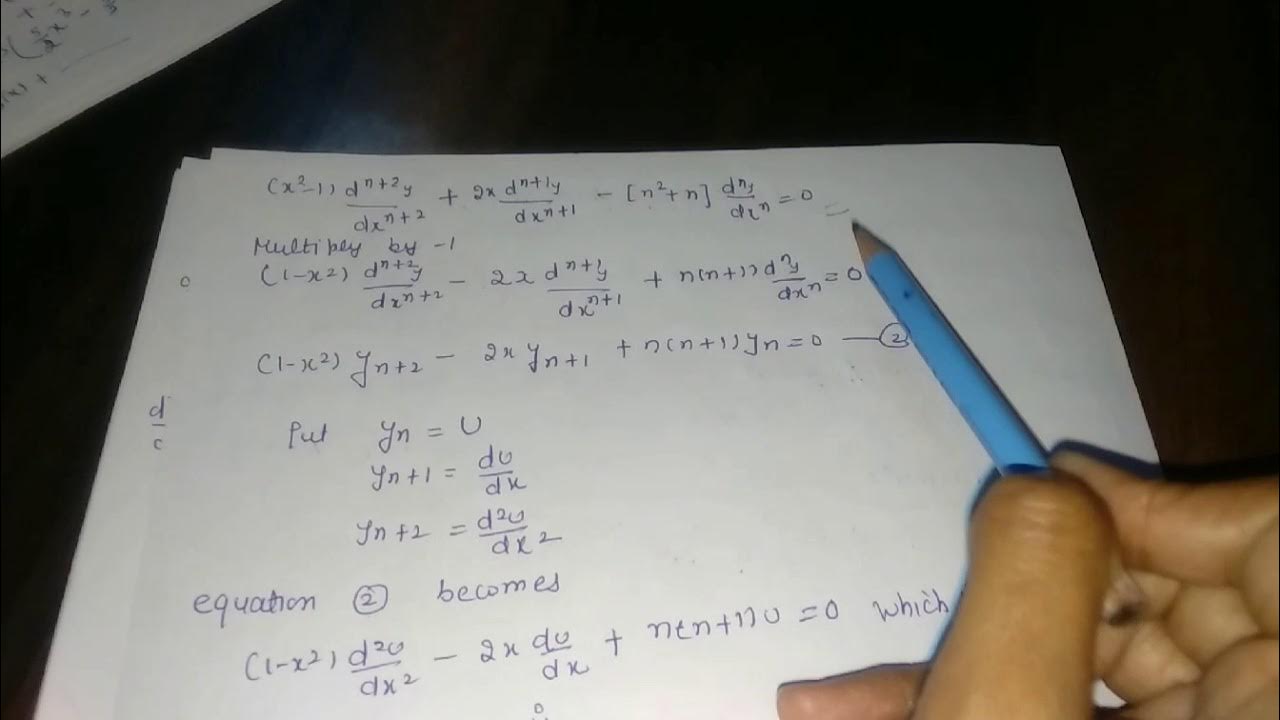 (x²-1) d^{n+2}y/dx^{n+2} + 2x d^{n+1}y/dx^{n+1} - [n²+n] d^n y/dx^n = 0
Multiply by -1
(1-x²) d^{n+2}y/dx^{n+2} - 2x d^{n+1}y/dx^{n+1} + n(n+1) d^n y/dx^n = 0
(1-x²) y_{n+2} - 2x y_{n+1} + n(n+1) y_n = 0 — ②
Put y_n = U
y_{n+1} = dU/dx
y_{n+2} = d²U/dx²
equation ② becomes
(1-x²) d²U/dx² - 2x dU/dx + n(n+1)U = 0 which